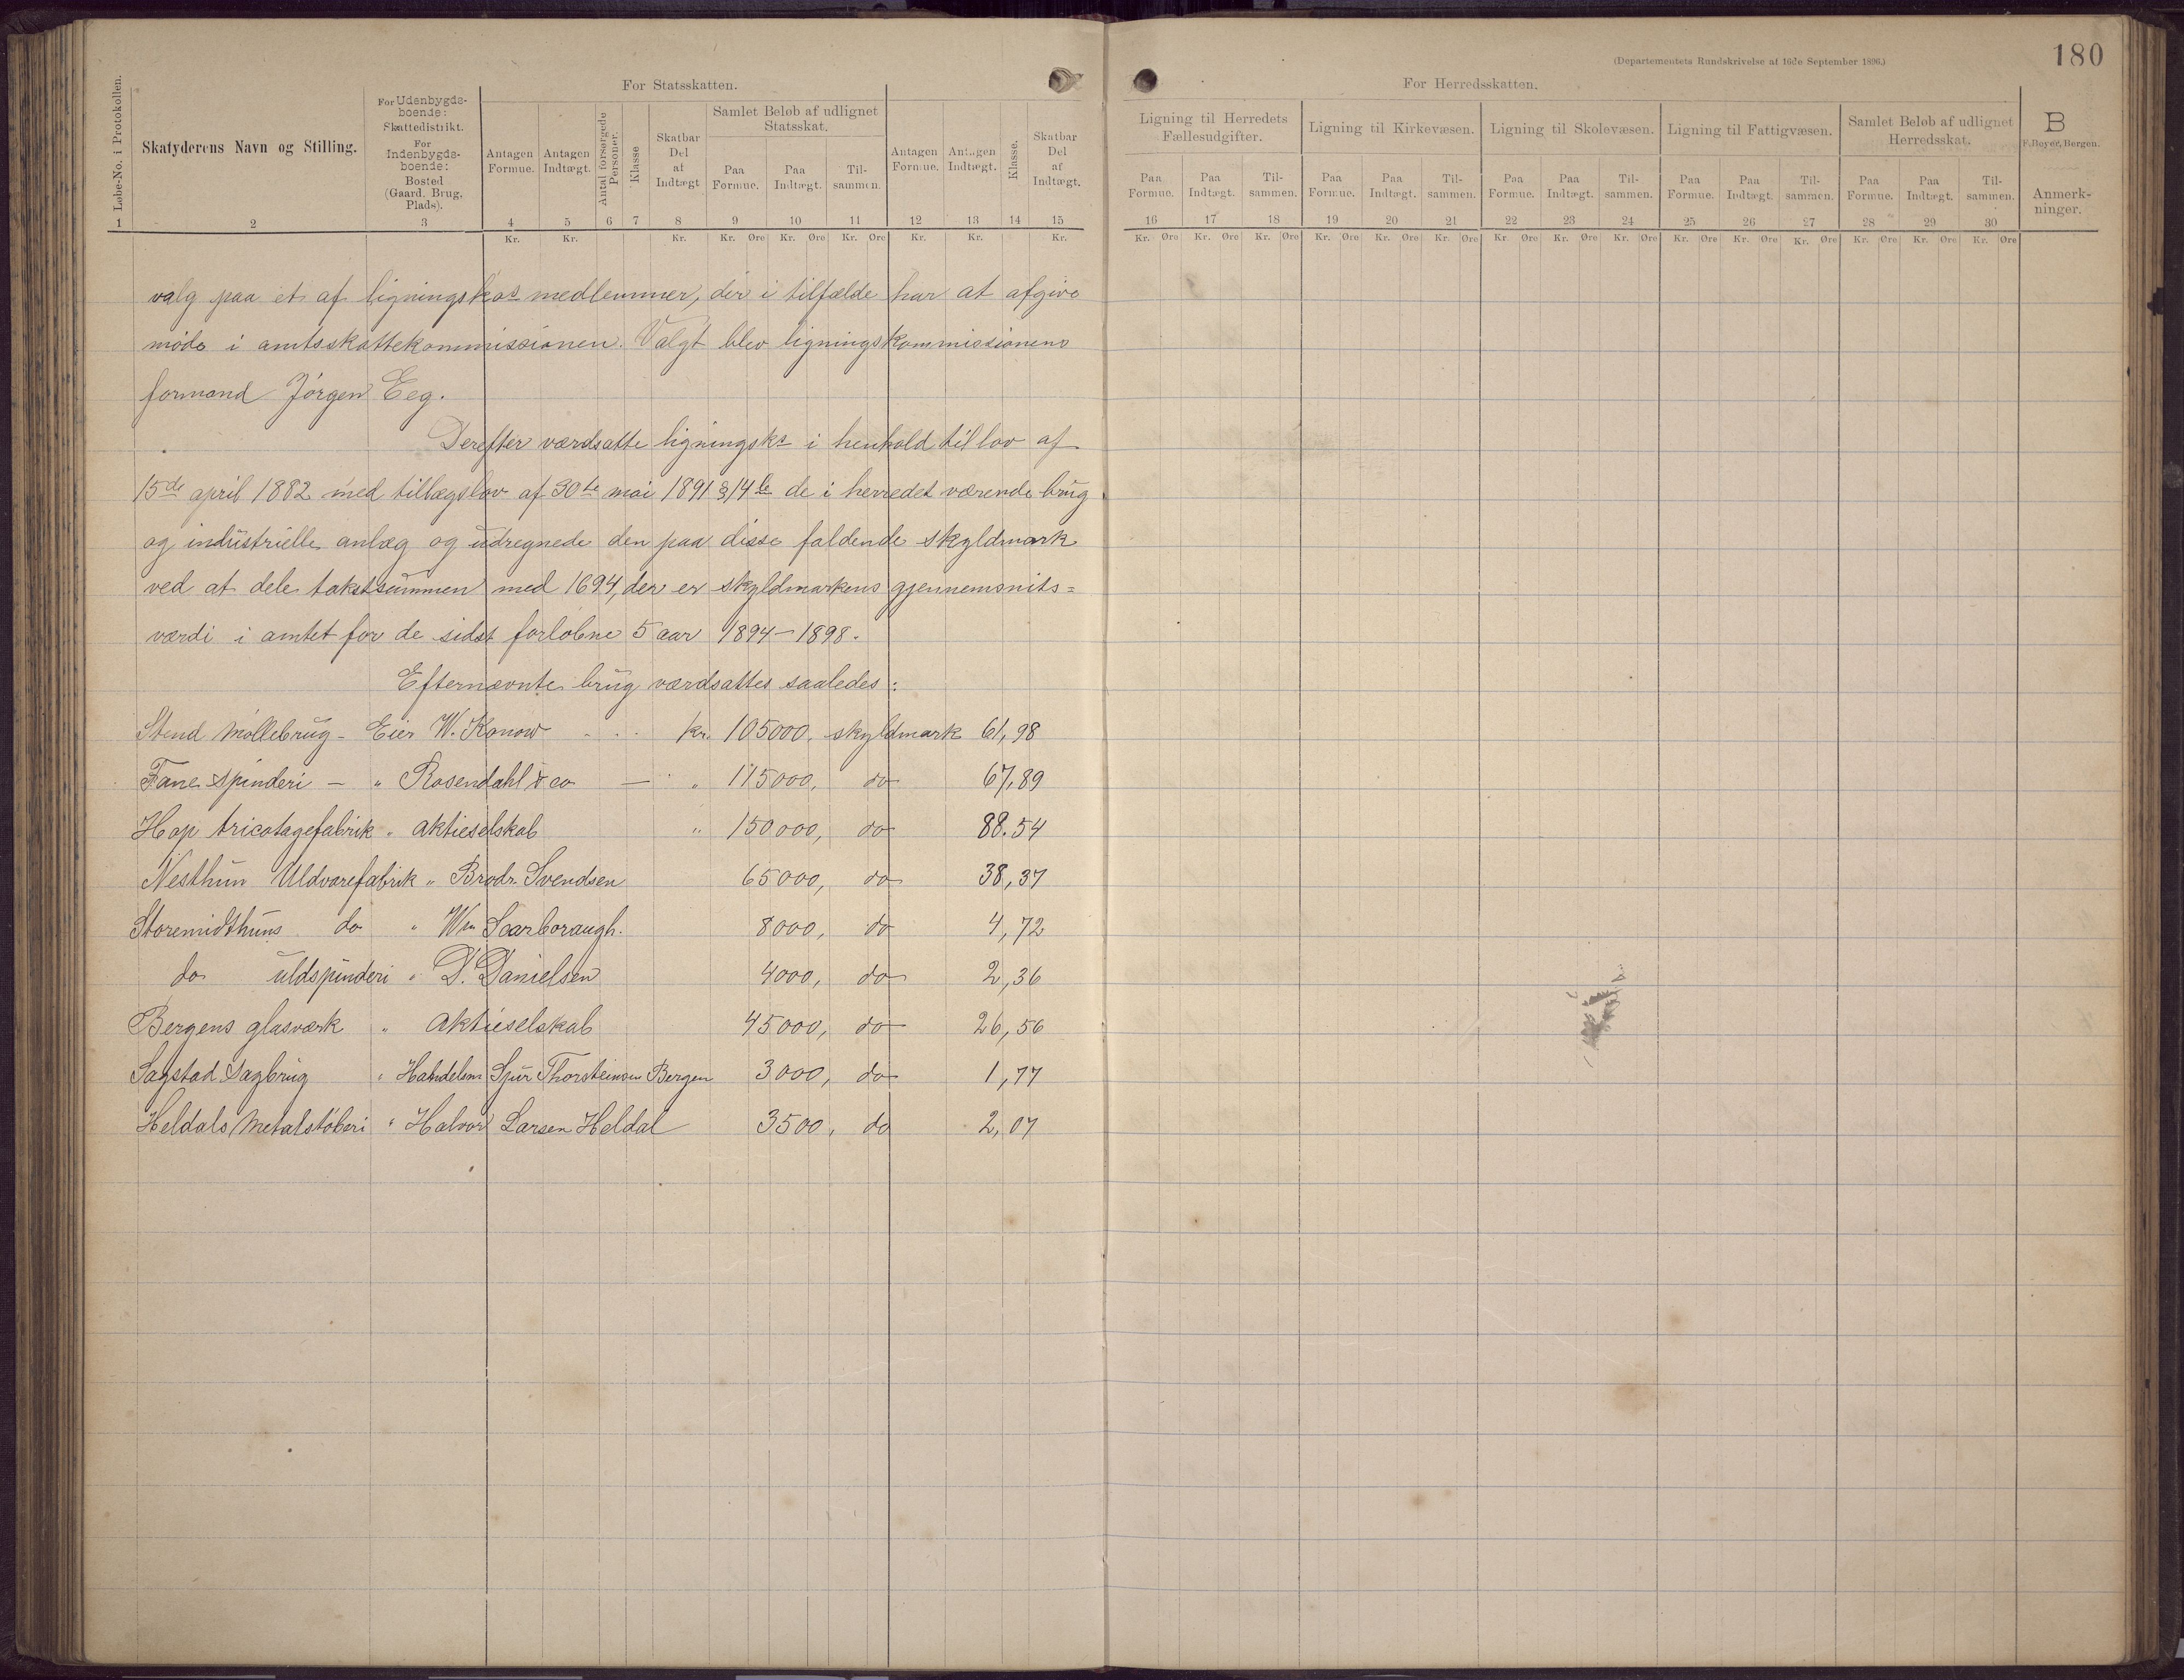 180
(Departementets Rundskrivelse af 16de September 1896.)
For Statsskatten.
For Herredsskatten.
Løbe-No. i Protokollen.
Skatyderens Navn og Stilling.
For Udenbygds-
boende:
Skattedistrikt.
For
Indenbygds-
boende:
Bosted
(Gaard, Brug,
Plads).
Antagen
Formue.
Antagen
Indtægt.
Antal forsørgede
Personer.
Klasse
Skatbar
Del
af
Indtægt
Samlet Beløb af udlignet
Statsskat.
Paa
Formue.
Paa
Indtægt.
Til-
sammen.
Antagen
Formue.
Antagen
Indtægt.
Klasse.
Skatbar
Del
af
Indtægt.
Ligning til Herredets
Fællesudgifter.
Paa
Formue.
Paa
Indtægt.
Til-
sammen.
Ligning til Kirkevæsen.
Paa
Formue.
Paa
Indtægt.
Til-
sammen.
Ligning til Skolevæsen.
Paa
Formue.
Paa
Indtægt.
Til-
sammen.
Ligning til Fattigvæsen.
Paa
Formue.
Paa
Indtægt.
Til-
sammen.
Samlet Beløb af udlignet
Herredsskat.
Paa
Formue.
Paa
Indtægt.
Til-
sammen.
B
F. Beyer, Bergen.
Anmerk-
ninger.
1 2 3 4 5 6 7 8 9 10 11 12 13 14 15 16 17 18 19 20 21 22 23 24 25 26 27 28 29 30
Kr. Kr. Kr. Kr. Øre Kr. Øre Kr. Øre Kr. Kr. Kr. Kr. Øre Kr. Øre Kr. Øre Kr. Øre Kr. Øre Kr. Øre Kr. Øre Kr. Øre Kr. Øre Kr. Øre Kr. Øre Kr. Øre Kr. Øre Kr. Øre Kr. Øre
valg paa et af ligningskos medlemmer, der i tilfælde har at afgive
møde i amtsskattekommissionen. Valgt blev ligningskommissionens
formand Jørgen Eeg.
Derefter værdsatte ligningsko i henhold til lov af
15de april 1882 med tillægslov af 30te mai 1891 § 14 b de i herredet værende brug
og industrielle anlæg og udregnede den paa disse faldende skyldmark
ved at dele takstsummen med 1694, der er skyldmarkens gjennemsnits=
værdi i amtet for de sidst forløbne 5 aar 1894-1898.
Efternævnte brug værdsattes saaledes:
Stend Møllebrug - Eier W. Konow . . . kr. 105000, skyldmark 61,98
Fane spinderi - " Rosendahl & co - " 115000, do 67,89
Hop tricotagefabrik " aktieselskab " 150000, do 88.54
Nesthun Uldvarefabrik " Brødr. Svendsen 65000, do 38,37
Storemidthuns do " Wm Scarboraugh. 8000, do 4,72
do uldspinderi " D. Danielsen 4000, do 2,36
Bergens glasværk " aktieselskab 45000, do 26,56
Sagstad Sagbrug " Handelsm Sjur Thorsteinsen Bergen 3000, do 1,77
Heldals Metalstøberi " Halvor Larsen Heldal 3500, do 2,07